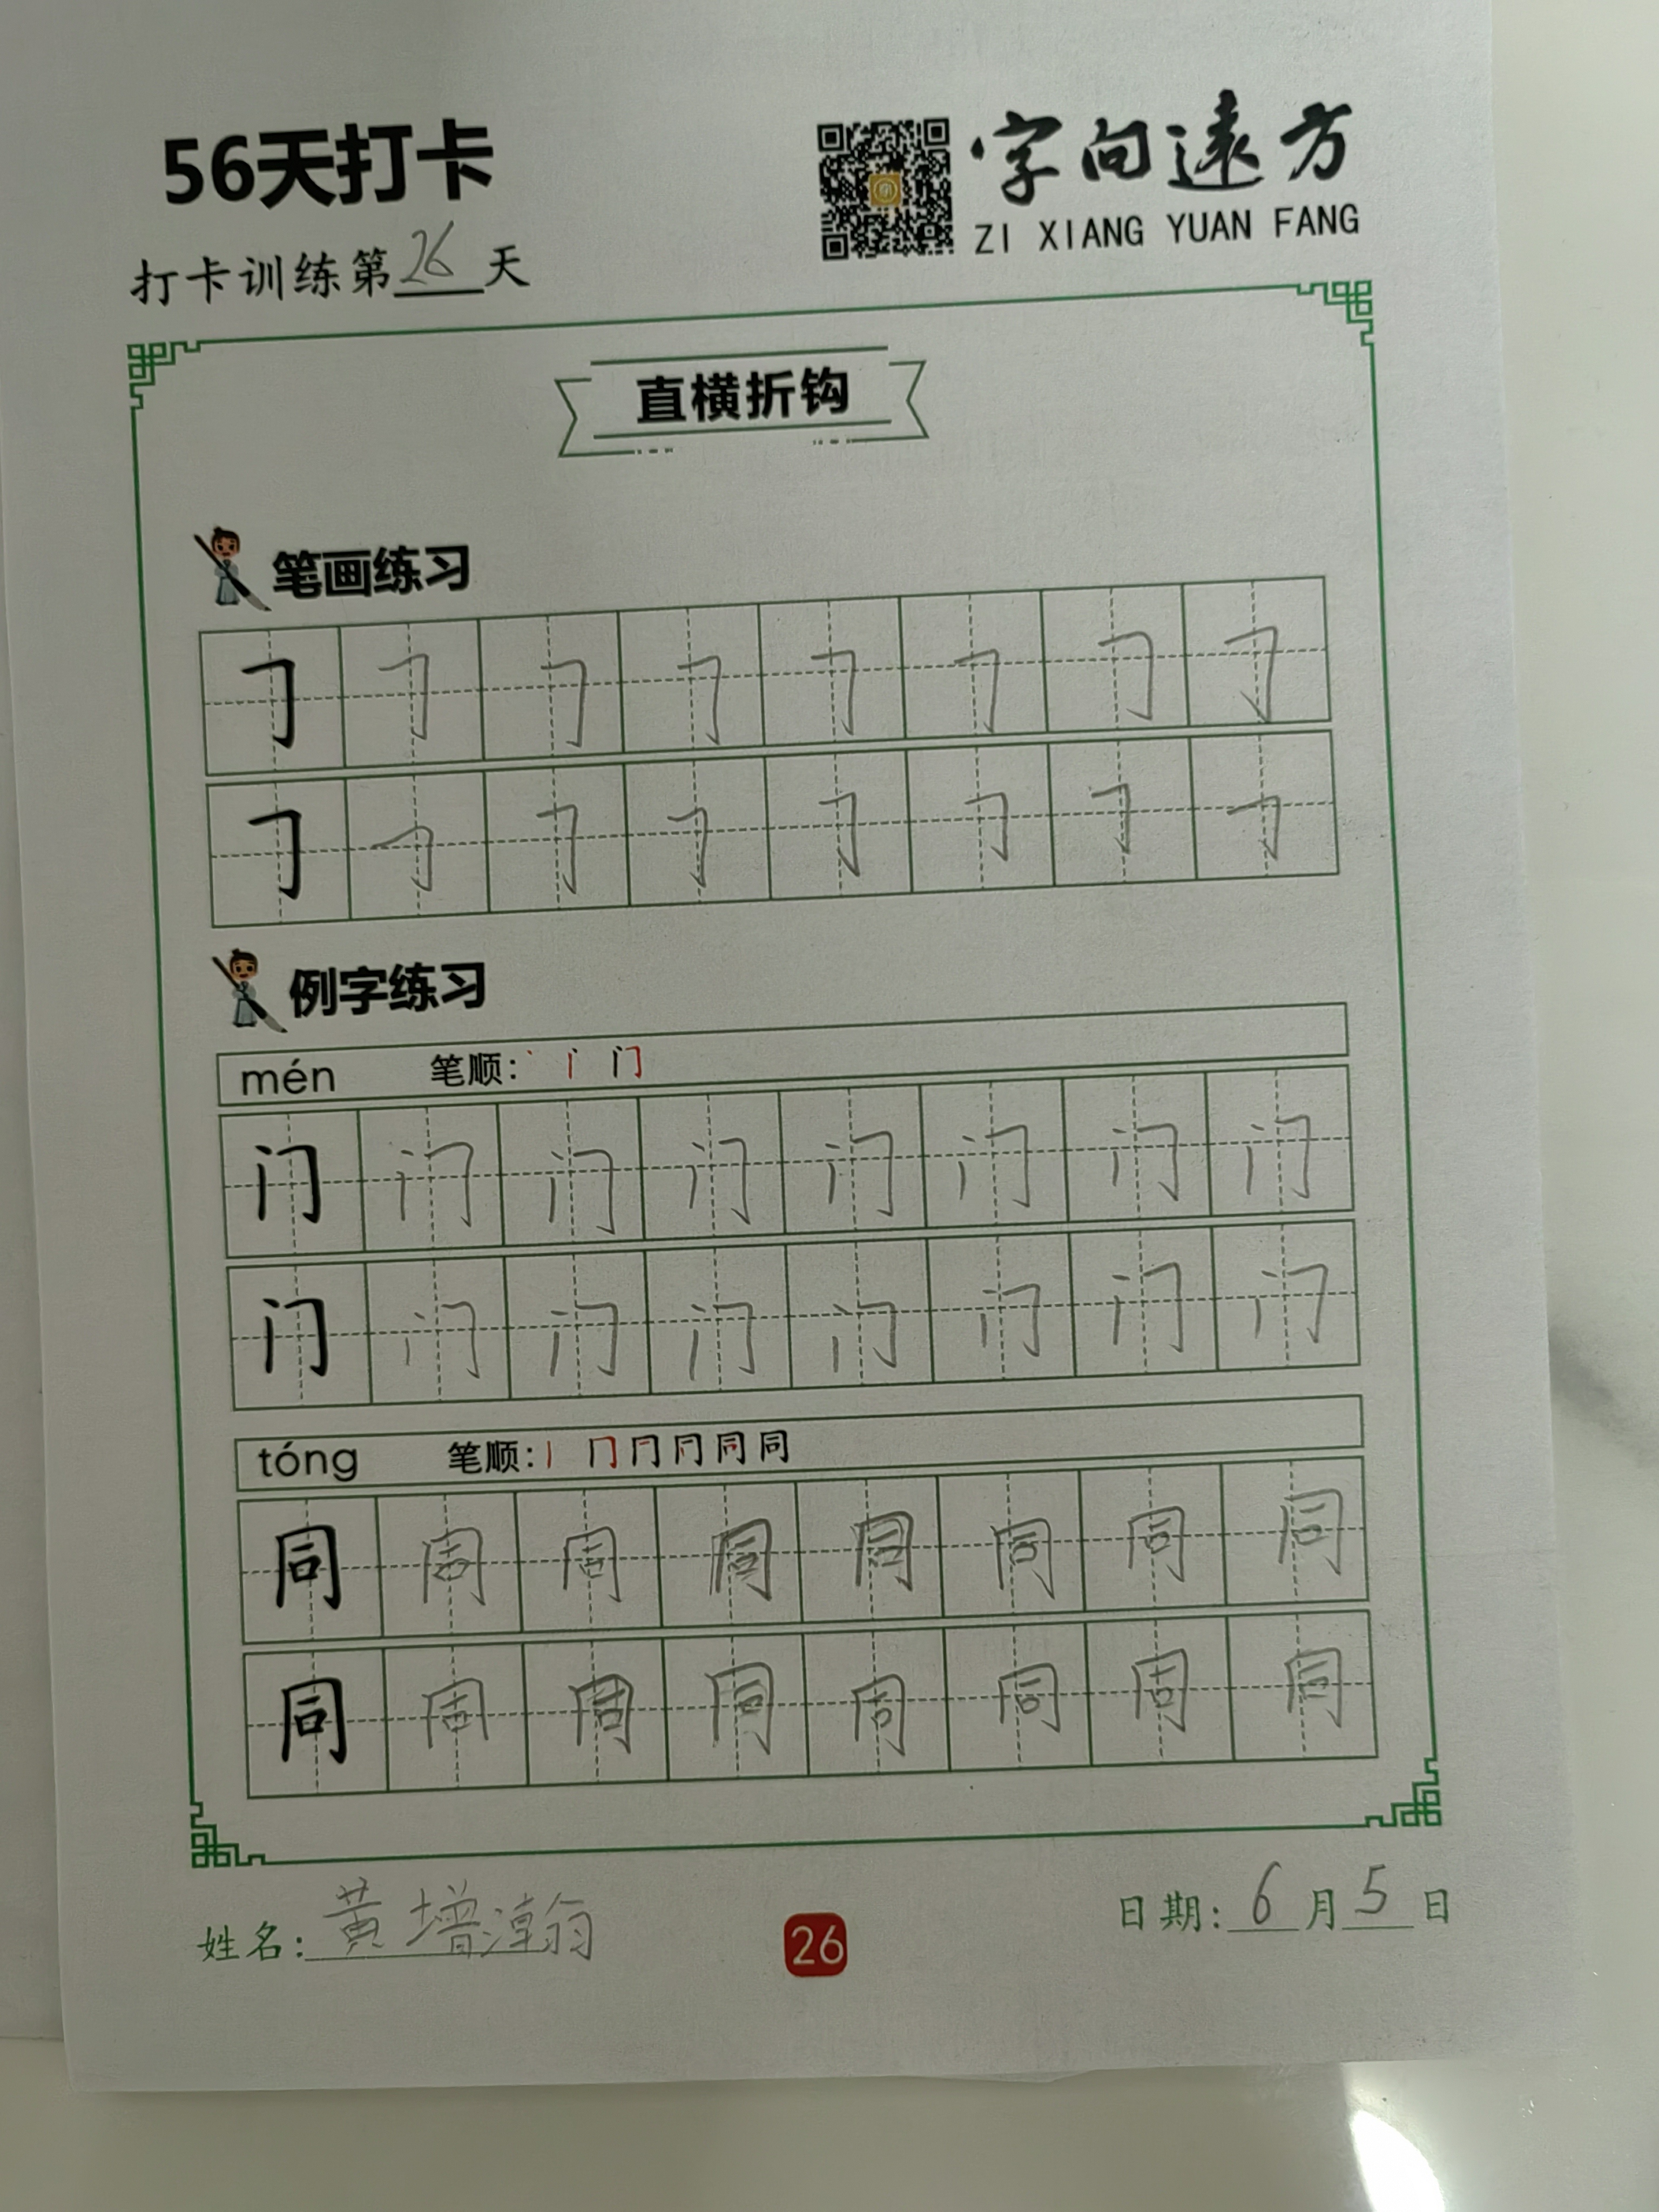 56天打卡
字向遠方
ZI XIANG YUAN FANG
打卡训练第26天
直横折钩
笔画练习
𠃌 𠃌 𠃌 𠃌 𠃌 𠃌 𠃌 𠃌
𠃌 𠃌 𠃌 𠃌 𠃌 𠃌 𠃌 𠃌
例字练习
mén 笔顺: 丶 丨 门
门 门 门 门 门 门 门 门
门 门 门 门 门 门 门 门
tóng 笔顺: 丨 冂 同 同
同 同 同 同 同 同 同 同
同 同 同 同 同 同 同 同
姓名: 黄增瀚
26
日期: 6月5日